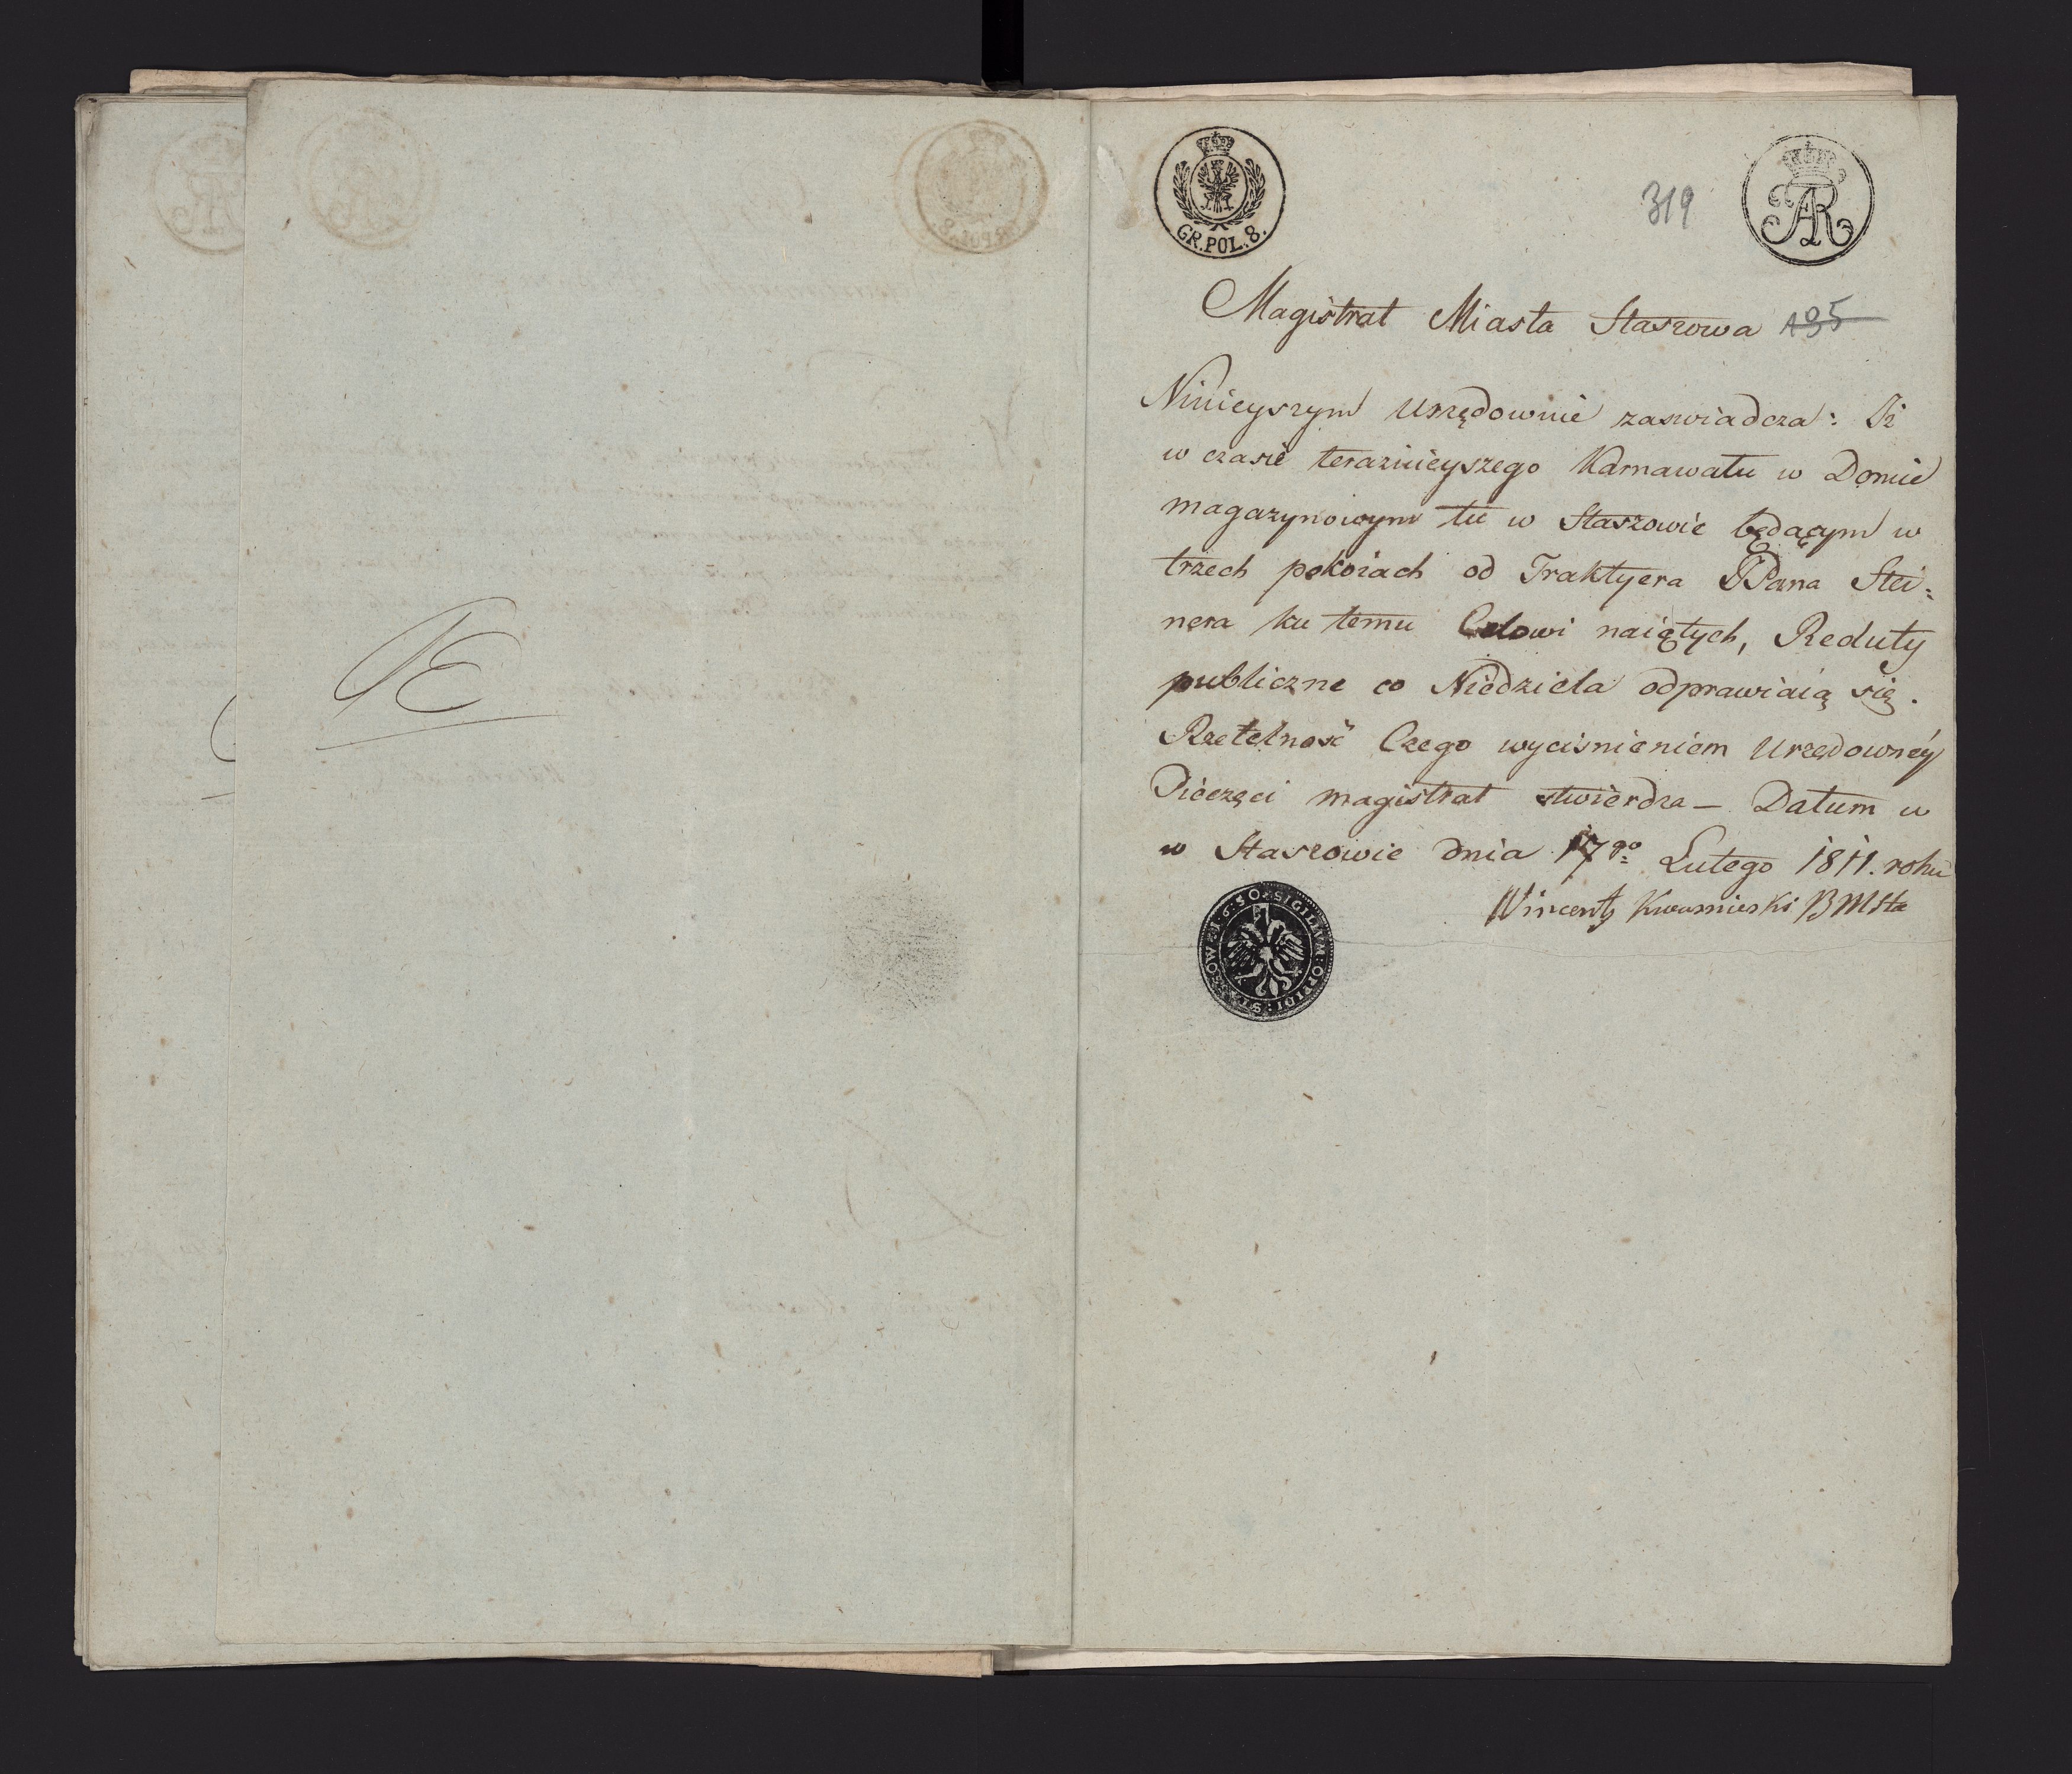 GR. POL. 8.
319
AR
Magistrat Miasta Staszowa 195
Ninieyszym Urzędownie zaswiadcza: Jż
w czasie teraznieyszego Karnawału w Domie
magazynowym tu w Staszowie będącym w
trzech pokoiach od Traktyera Pana Stei:
nera ku temu Celowi naiętych, Reduty
publiczne co Niedziela odprawiaią się.
Rzetelność Czego wyciśnieniem Urzędowney
Pieczęci magistrat stwierdza – Datum w
w Staszowie dnia 17go Lutego 1811. roku
Wincenty
SIGILLVM: OPPIDI: 1.6.5.0